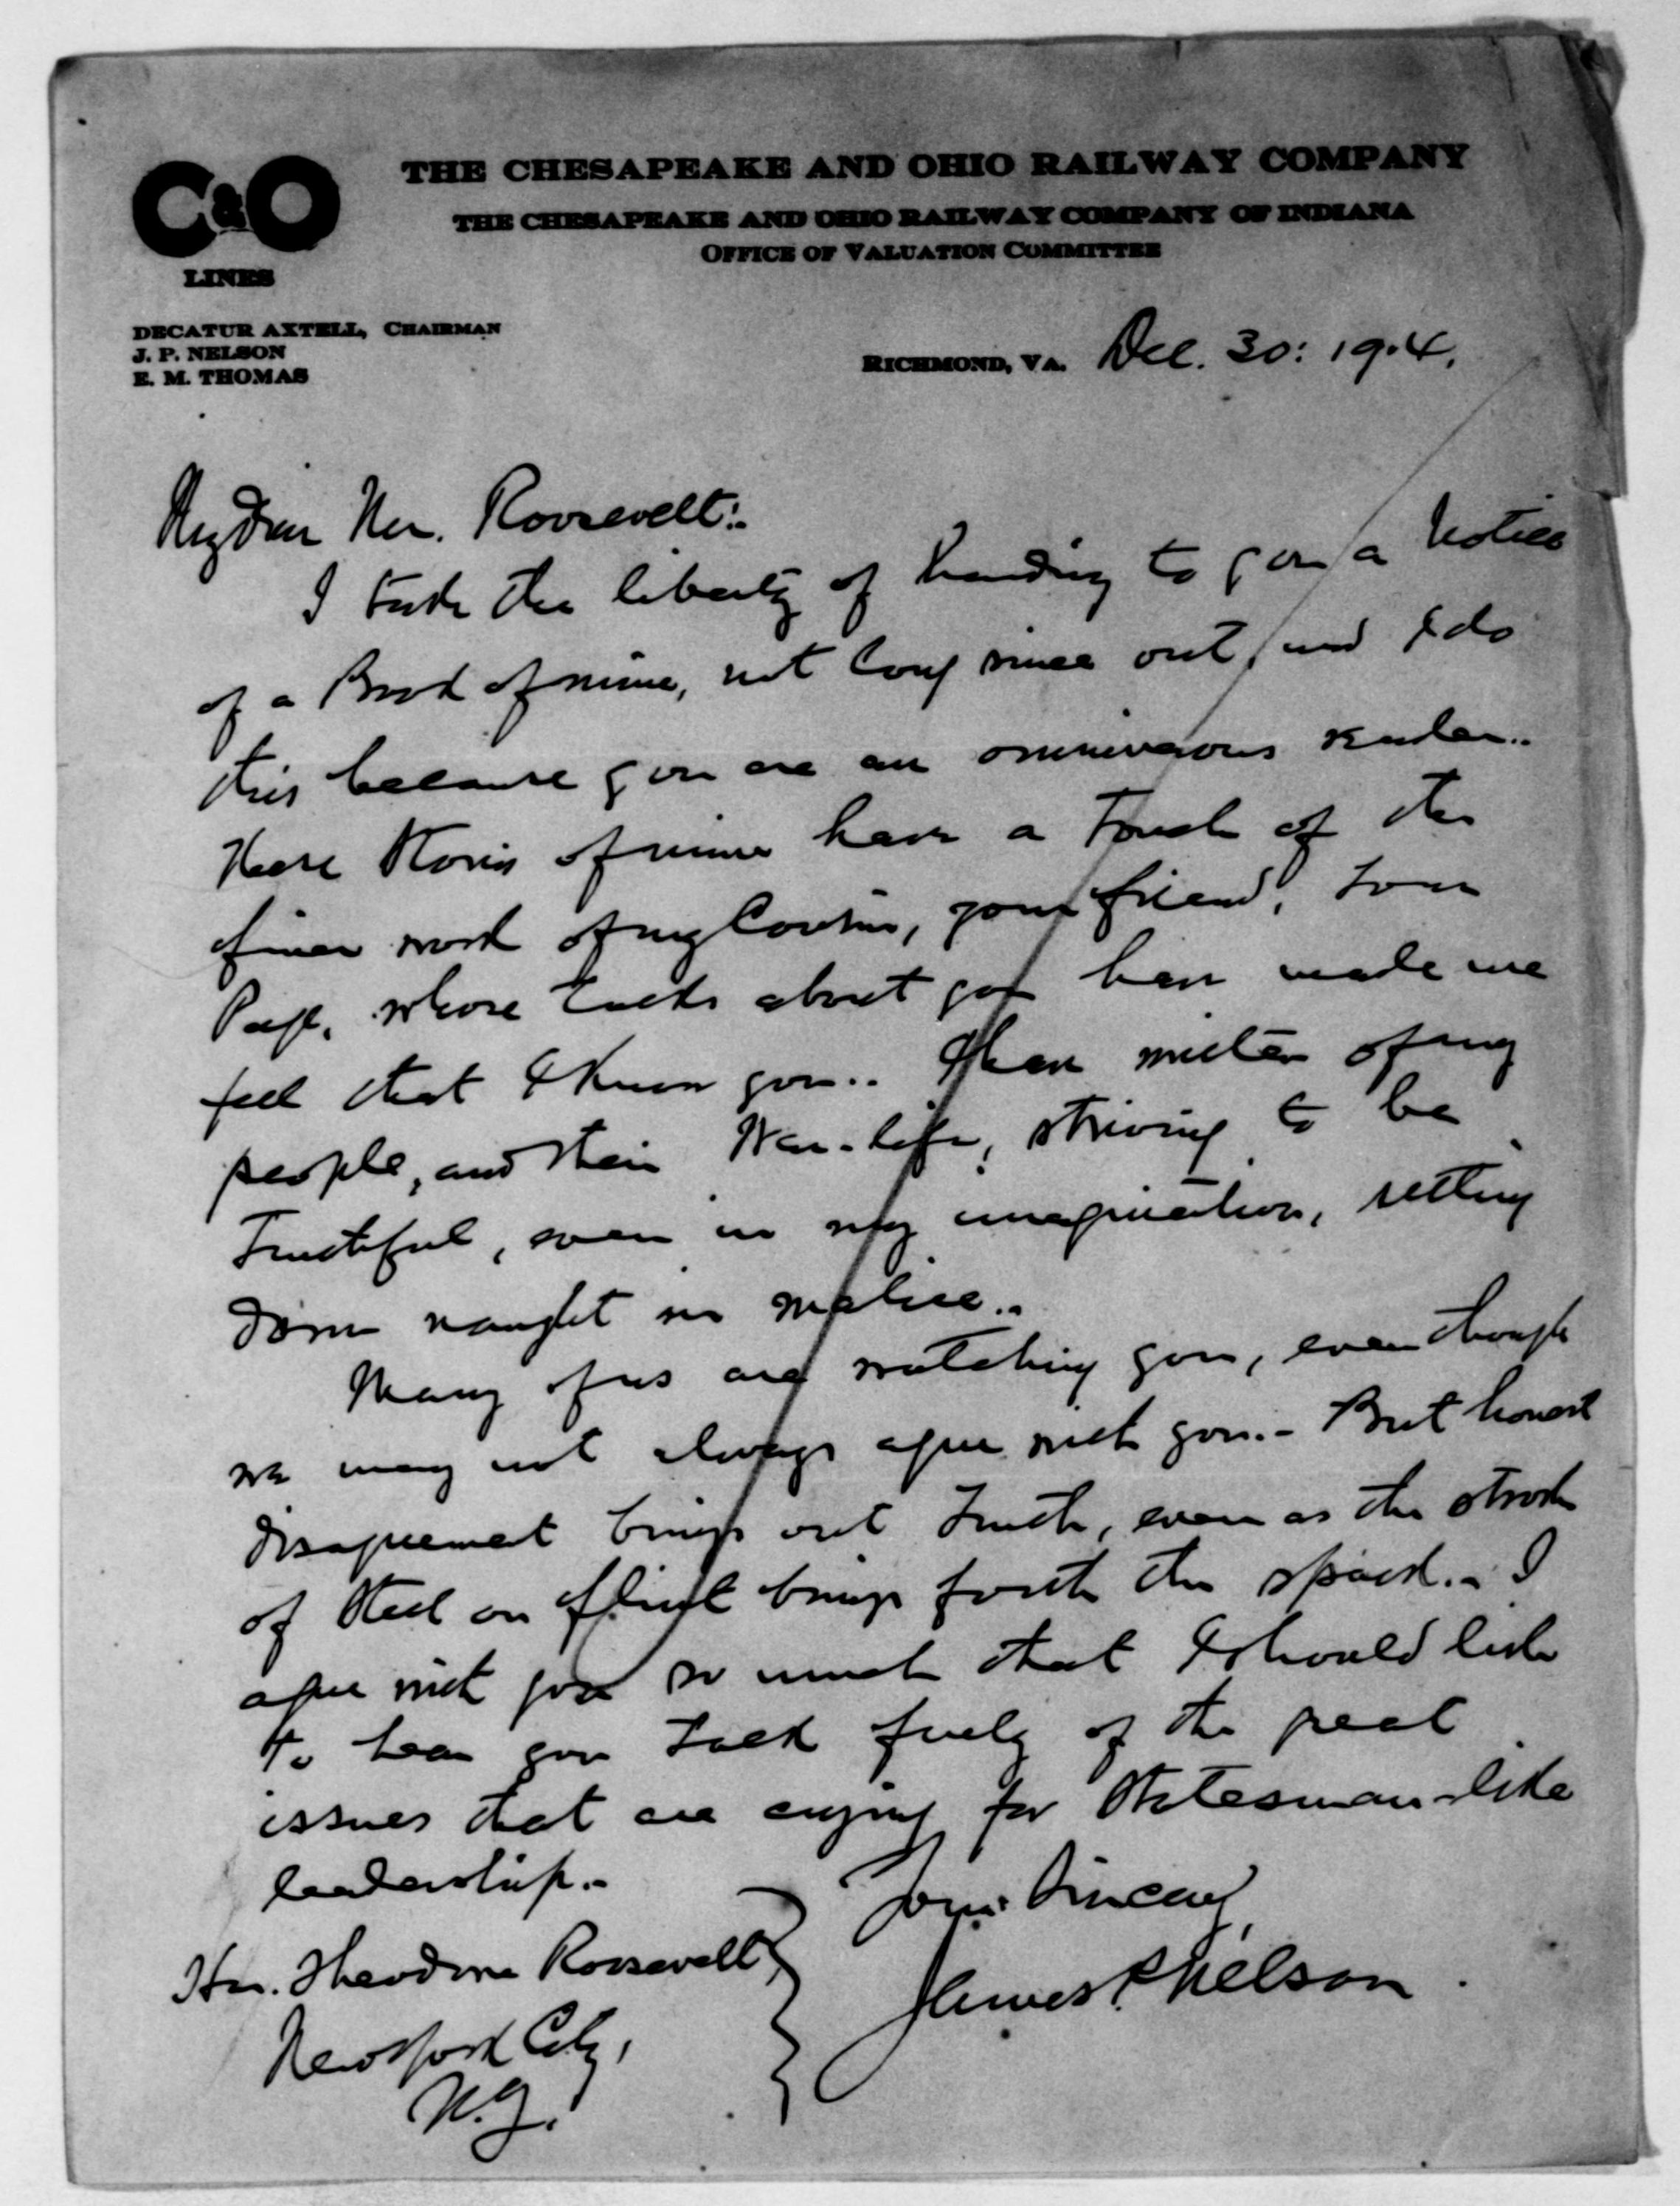 C&O
LINES
THE CHESAPEAKE AND OHIO RAILWAY COMPANY
THE CHESAPEAKE AND OHIO RAILWAY COMPANY OF INDIANA
OFFICE OF VALUATION COMMITTEE
DECATUR AXTELL, CHAIRMAN
J. P. NELSON
E. M. THOMAS
RICHMOND, VA. Dec. 30: 1914.
My dear Mr. Roosevelt:
I take the liberty of handing to you a notice
of a Book of mine, not long since out, and I do
this because you are an omnivorous reader..
These stories of mine have a touch of the
finer work of my Cousin, your friend, Tom
Page, whose talks about you have made me
feel that I know you.. I have written of my
people, and their War-life, striving to be
Truthful, even in my imagination, setting
down naught in malice..
Many of us are watching you, even though
we may not always agree with you.- But honest
disagreement brings out Truth, even as the stroke
of steel on flint brings forth the spark.- I
agree with you so much that I should like
to hear you talk freely of the great
issues that are crying for Statesman-like
leadership.-
Yours Sincerely,
James P. Nelson.
Hon. Theodore Roosevelt,
New York City,
N.Y.